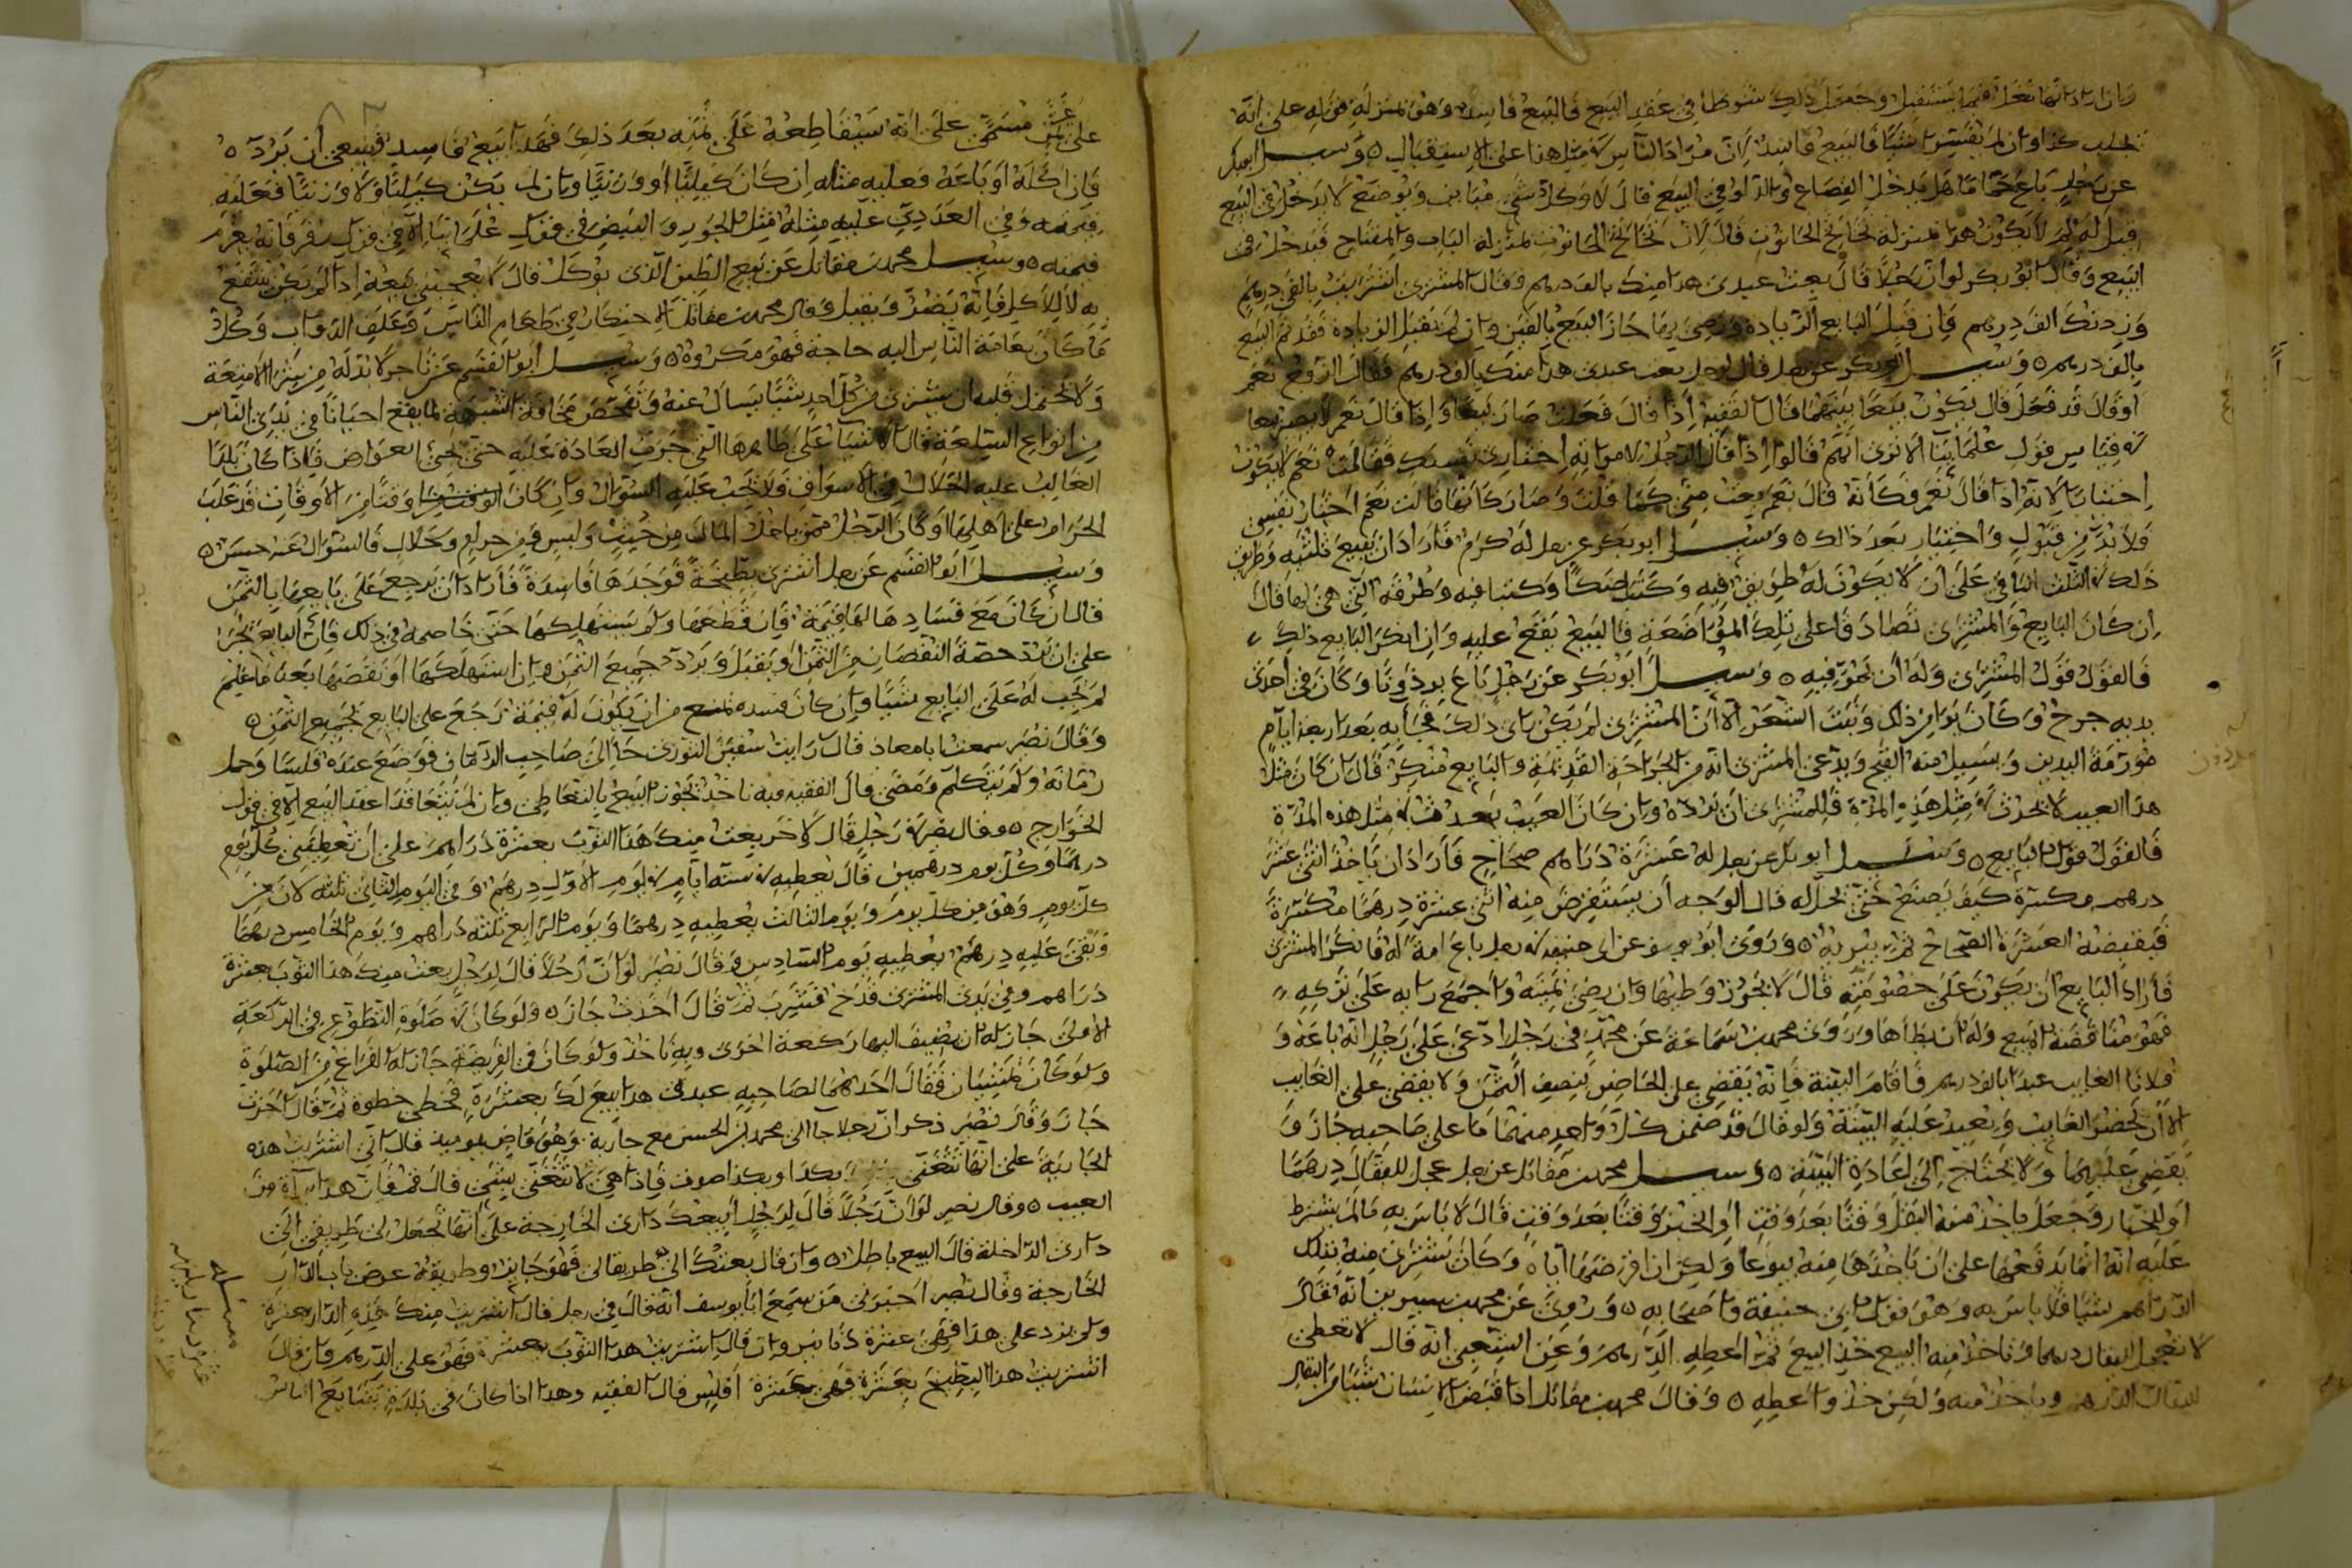 وان اراد انها تفعل فيما يستقبل وجعل ذلك شرطا في عقد البيع فالبيع فاسد وهو بمنزلة قوله على انه
كذا وان لم يفسر شيئا فالبيع فاسد لان مراد الناس في مثل هذا على الاستقبال ه وسئل ابو بكر
عن رجل باع حماما هل يدخل القصاع والدلو في البيع قال لا وكل شيء مباين ويوضع لا يدخل في البيع
قيل له لم لا يكون هذا بمنزلة تخاتج الحانوت قال لان تخاتج الحانوت بمنزلة الباب والمفتاح فتدخل في
البيع وقال ابو بكر لو ان رجلا قال بعت عبدي هذا منك بالف درهم وقال المشتري اشتريت بالفي درهم
وزدتك الف درهم فان قبل البايع الزيادة ورضي بها جاز البيع بالفين وان لم يقبل الزيادة فقد تم البيع
بالف درهم ه وسئل ابو بكر عن رجل قال لرجل بعت عبدي هذا منك بالف درهم فقال الزوج نعم
او قال قد فعل قال يكون بيعا بينهما قال الفقيه اذا قال فعلت صار بيعا واذا قال نعم لا يصير بيعا
في قياس قول علمائنا الا ترى انهم قالوا اذا قال الرجل لامراته اختاري نفسك فقالت نعم لا يكون
اختيارا لانه اذا قال نعم فكانه قال نعم بعت مني كما قلت وصار كانها قالت نعم اختار نفسي
فلا بد من قبول واختيار بعد ذلك ه وسئل ابو بكر عن رجل له كرم فاراد ان يبيع ثلثيه وطريق
ذلك في الثلث الباقي على ان لا يكون له طريق فيه وكتبا صكا وكتبا فيه وطرقه التي هي لها قال
ان كان البايع والمشتري تصادقا على تلك المواضعة فالبيع يقع عليه وان انكر البايع ذلك
فالقول قول المشتري وله ان يمر فيه ه وسئل ابو بكر عن رجل باع برذونا وكان في احدى
يديه جرح وكان بوا من ذلك ونبت الشعر الا ان المشتري لم يكن راى ذلك فجا به بعد اربعة ايام
مورمة اليدين ويسيل منه القيح ويدعي المشتري انه من الجراحة القديمة والبايع منكر قال ان كان مثل
هذا العيب لا يحدث في مثل هذه المدة فللمشتري ان يرده وان كان العيب يحدث في مثل هذه المدة
فالقول قول البايع ه وسئل ابو بكر عن رجل له عشرة دراهم صحاح فاراد ان ياخذ اثني عشر
درهم مكسرة كيف يصنع حتى يحل له قال الوجه ان يستقرض منه اثني عشرة درهما مكسرة
فيقبضه العشرة الصحاح ثم يبريه ه وروى ابو يوسف عن ابي حنيفة في رجل باع امة له فانكر المشتري
فاراد البايع ان يكون على خصومته قال لا يجوز وطيها وان رضي بميته واجمع رايه على تركه
فهو مناقضة البيع وله ان يطاها وروى محمد بن سماعة عن محمد في رجل ادعى على رجل انه باعه و
فلانا الغايب عبدا بالف درهم فاقام البينة فانه يقضي على الحاضر بنصف الثمن ولا يقضي على الغايب
الا ان يحضر الغايب ويعيد عليه البينة ولو قال قد ضمن كل واحد منهما ما على صاحبه جاز و
يقضي عليهما ولا يحتاج الى اعادة البينة ه وسئل محمد بن مقاتل عن رجل عجل للبقال درهما
او للخباز وجعل ياخذ منه البقل وقتا بعد وقت او الخبز وقتا بعد وقت قال لا باس به ما لم يشترط
عليه انه انما يدفعها على ان ياخذها منه بيوعا ولكن ان اقرضها اياه وكان يشتري منه بتلك
الدراهم شيئا فلا باس به وهو قول ابي حنيفة واصحابه ه وروي عن محمد بن سيرين انه قال
لا تعجل البقال درهما وتاخذ منه البيع خذ البيع ثم اعطه الدرهم وعن الشعبي انه قال لا تعطى
للبقال الدرهم وياخذ منه ولكن خذ واعطه ه وقال محمد بن مقاتل اذا قبض الانسان شيئا من البقال
على ثمن مسمى على انه سيقاطعه على ثمنه بعد ذلك فهذا بيع فاسد فينبغي ان يرده
فان اكله او باعه فعليه مثله ان كان كيليا او وزنيا وان لم يكن كيليا ولا وزنيا فعليه
قيمته وفي العددي عليه مثله مثل الجوز والبيض في قول علمائنا الا في قول زفر فانه يغرم
قيمته ه وسئل محمد بن مقاتل عن بيع الطين الذي يوكل قال لا يعجبني بيعه اذا لم يكن ينتفع
به الا للاكل فانه يضر ويقتل وقال محمد بن مقاتل الاحتكار في طعام الناس وعلف الدواب وكل
ما كان بعامة الناس اليه حاجة فهو مكروه ه وسئل ابو القسم عن تاجر لا بد له من شرا الامتعة
ولا يحتمل قلبه ان يشتري من كل احد شيئا يسال عنه وتفحص مخافة الشبهة لما يقع احيانا في يدي الناس
من انواع السلعة قال الاشيا على ظاهرها التي جرت العادة عليه حتى يجي العوارض فاذا كان بلدا
الغالب عليه الحلال في الاسواق فلا يجب عليه السوال وان كان وقتا من الاوقات قد غلب
الحرام على اهلها او كان الرجل ممن ياخذ المال من حيث وليس فيه حرام وحلال فالسوال عنه حسن ه
وسئل ابو القسم عن رجل اشترى بطيخة فوجدها فاسدة فاراد ان يرجع على بايعها بالثمن
قال ان كان مع فسادها لها قيمة فان قطعها ولم يستهلكها حتى خاصمه في ذلك فان البايع يخير
على ان يرد حصة النقصان من الثمن او يقبل ويرد جميع الثمن وان استهلكها او نقصها بعد ما علم
لم يجب له على البايع شيئا وان كان فسده تمنع من ان يكون له قيمة رجع على البايع بجميع الثمن ه
وقال نصر سمعت ابا معاذ قال رايت سفين الثوري جا الى صاحب الرمان فوضع عنده فلسا وحمل
رمانة ولم يتكلم ومضى قال الفقيه وبه ناخذ يجوز البيع بالتعاطي وان لم يتعاقدا عقد البيع الا في قول
الخوارج ه وقال نصر في رجل قال لاخر بعت منك هذا الثوب بعشرة دراهم على ان تعطيني كل يوم
درهما وكل يوم درهمين قال يعطيه في ستة ايام في اليوم الاول درهم وفي اليوم الثاني ثلثة لان من
كل يوم وهو من كل يوم ويوم الثالث يعطيه درهما ويوم الرابع ثلثة دراهم ويوم الخامس درهما
وبقي عليه درهم يعطيه يوم السادس وقال نصر لو ان رجلا قال لرجل بعت منك هذا الثوب بعشرة
دراهم وفي يدي المشتري قدح فشرب ثم قال اخذت جاز ه ولو كان في صلوة التطوع في الركعة
الاولى جاز له ان يضيف اليها ركعة اخرى وبه ناخذ ولو كان في الفريضة جاز له الفراغ من الصلوة
ولو كان يمشيان فقال احدهما لصاحبه عبدي هذا بيع لك بعشرة فخطى خطوة ثم قال اخذت
جاز وقال نصر ذكر ان رجلا جا الى محمد بن الحسن مع جارية وهو قاض يوميذ قال اني اشتريت هذه
الجارية على انها تتغنى بكذا وبكذا صوت فاذا هي لا تتغنى بشيء قال قم فان هذا براة من
العيب ه وقال نصر لو ان رجلا قال لرجل ابيعك داري الخارجة على انها تجعل لي طريقي الى
داري الداخلة قال البيع باطل ه وان قال بعتك الا طريقا لي فهو جايز وطريقه عرض باب الدار
الخارجة وقال نصر اخبرني من سمع ابا يوسف انه قال في رجل قال اشتريت منك هذه الدار بعشرة
ولم يزد على هذا فهي عشرة دنانير وان قال اشتريت هذا الثوب بعشرة فهو على الدرهم وان قال
اشتريت هذا البطيخ بعشرة فهي بعشرة افليس قال الفقيه وهذا اذا كان في بلدة يتبايع الناس